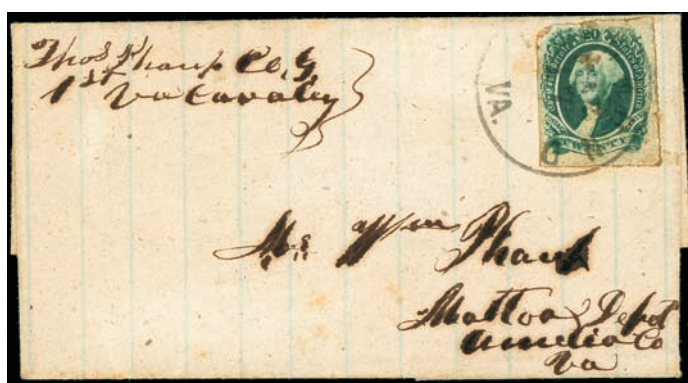 Thos Phaup Co, G,
1st Va Cavalry
20
VA.
TWENTY
Mr Wm Phaup
Mattoax Depot
Amelia Co
Va